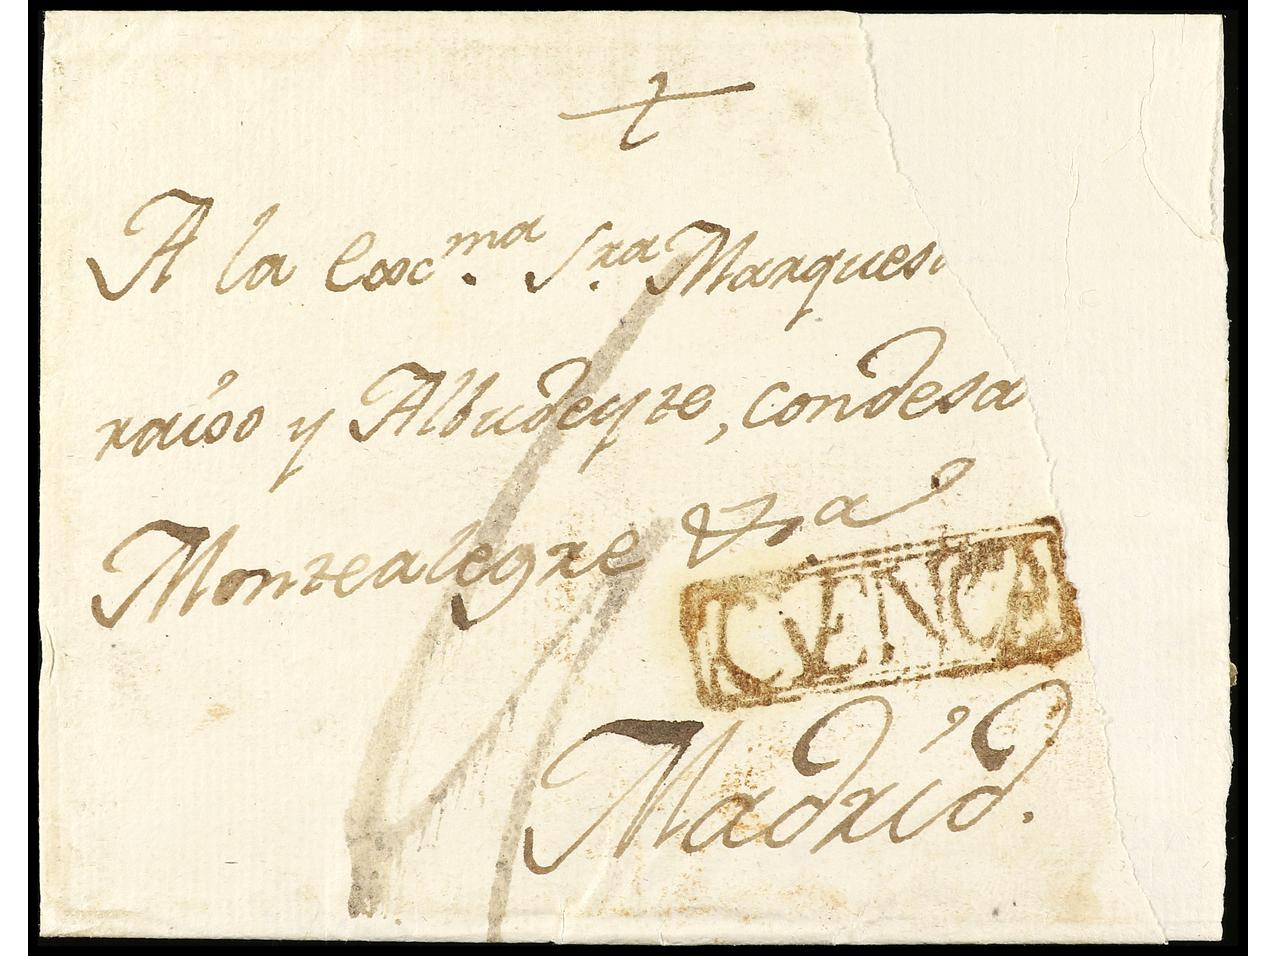 A la Excma. Sra. Marques
raiso y Albudeyte, condesa
Montealegre &a
CVENCA
Madrid.